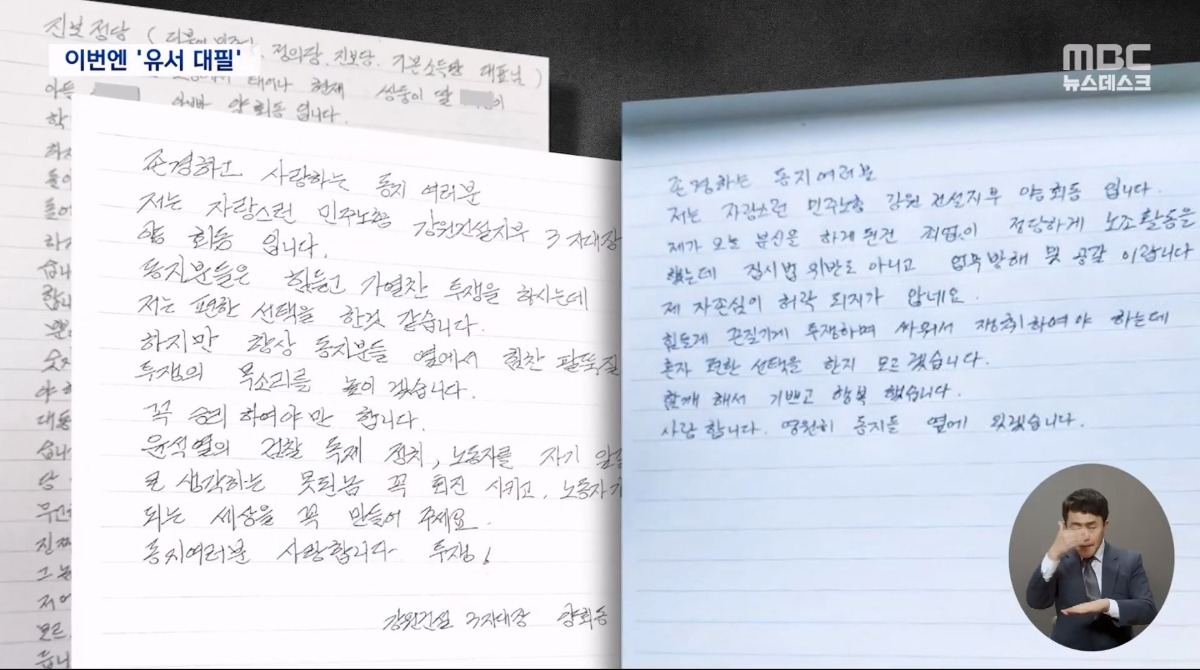 이번엔 '유서 대필'
MBC
뉴스데스크
진보정당 ( 정의당, 진보당, 기본소득당 대표님 )
아들
태어나 현재 쌍둥이 딸
아빠 양회동 입니다.
존경하고 사랑하는 동지 여러분
저는 자랑스런 민주노총 강원건설지부 3지대장
양 회동 입니다.
동지분들은 힘들고 가열찬 투쟁을 하시는데
저는 편한 선택을 한것 같습니다.
하지만 항상 동지분들 옆에서 힘찬 팔뚝질
투쟁의 목소리를 높이 겠습니다.
꼭 승리 하여야만 합니다.
윤석열의 검찰 독재 정치, 노동자를 자기
로 생각하는 못된놈 꼭 퇴진 시키고, 노동자가
되는 세상을 꼭 만들어 주세요.
동지여러분 사랑합니다 투쟁!
강원건설 3지대장 양회동
존경하는 동지여러분
저는 자랑스런 민주노총 강원 건설지부 양회동 입니다.
제가 오늘 분신을 하게 된건 죄없이 정당하게 노조활동을
했는데 집시법 위반도 아니고 업무방해 및 공갈 이랍니다
제 자존심이 허락 되지가 않네요.
힘들게 끈질기게 투쟁하며 싸워서 쟁취하여야 하는데
혼자 편한 선택을 한지 모르겠습니다.
함께 해서 기쁘고 행복 했습니다.
사랑 합니다. 영원히 동지들 옆에 있겠습니다.